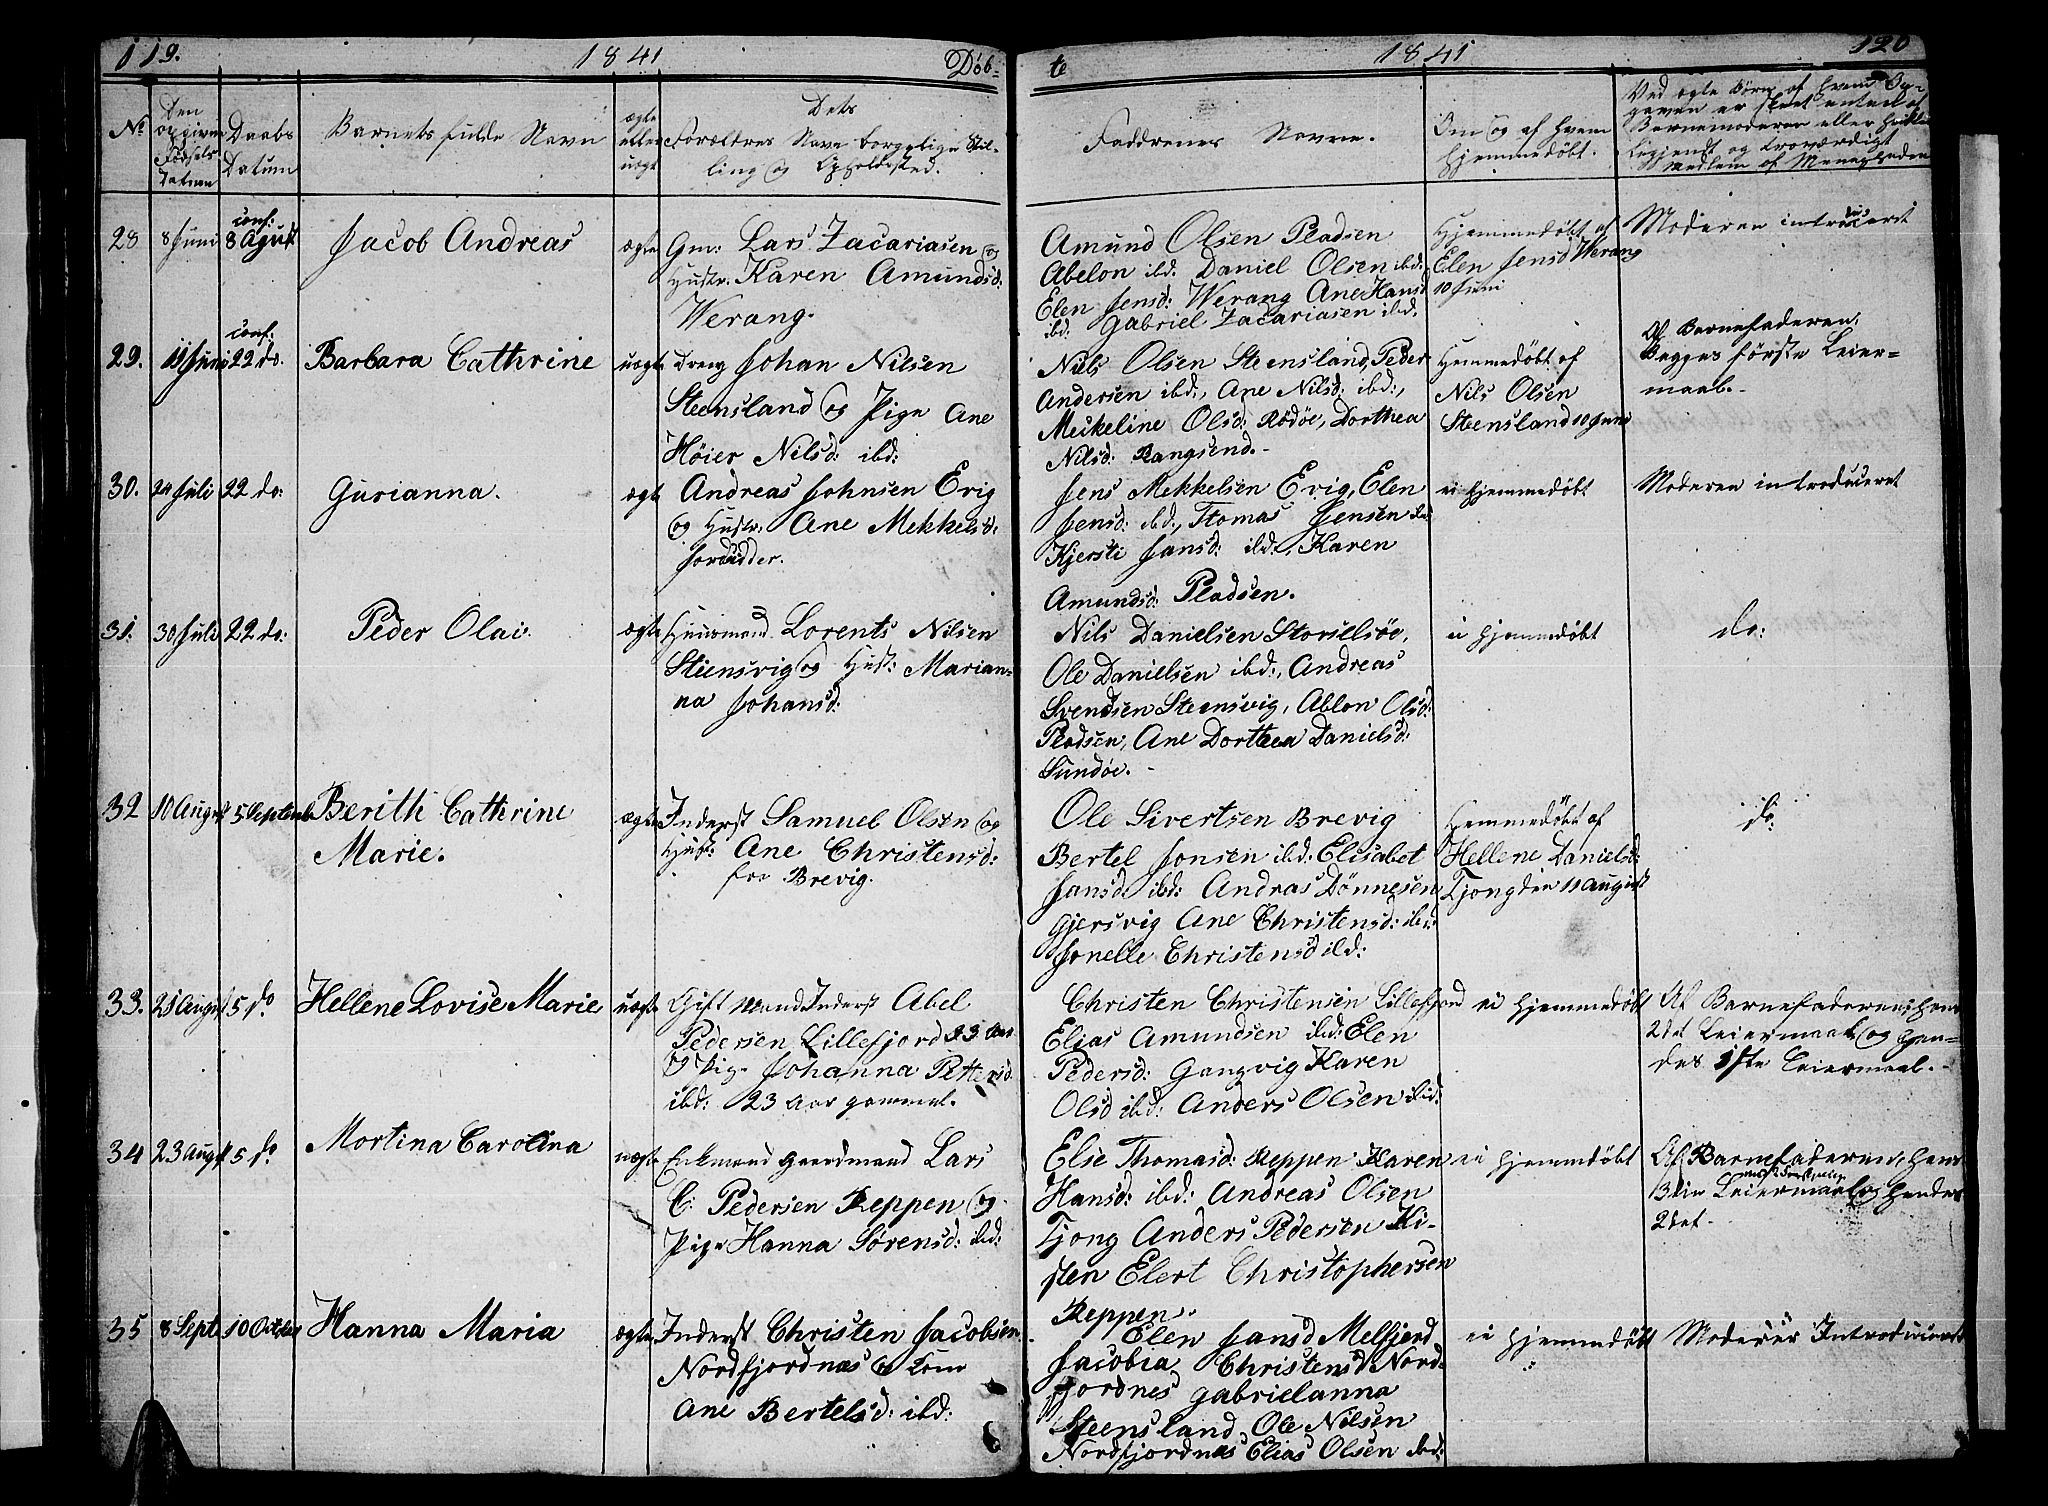 119. 1841 Döb- te 1841 120
No
Den opgivne Fødsels Datum
Daabs Datum
Barnets fulde Navn
ægte eller uægte
Dets Forældres Navn borgerlige Stilling og Opholdssted.
Faddrenes Navne.
Om og af hvem hjemmedøbt.
Ved ægte Børn af hvem Opgaven er skeet enten af Barnemoderen eller hvilket Medlem af Menigheden
28 8 Juni conf: 8 Agust Jacob Andreas ægte Gm: Lars Zacariasen og
Hustr. Karen Amundsd:
Werang.
Amund Olsen Pladsen
Abelon ibd: Daniel Olsen ibd:
Elen Jensd: Werang Ane Hansd
ibd: Gabriel Zacariasen ibd.
Hjemmedøbt af
Elen Jensd Werang
10 Juni
Moderen introduceret
29. 11 Juni conf: 22 do. Barbara Cathrine uægte Dreng Johan Nilsen
Steensland og Pige Ane
Høier Nilsd: ibd:
Nils Olsen Steensland, Peder
Andersen ibd:, Ane Nilsd: ibd:,
Meckeline Olsd: Rödöe, Dorthea
Nilsd: Rangsend.-
Hjemmedøbt af
Nils Olsen
Steensland 10 Juni
Af Barnefaderen.
Begges förste Leier=
maal.-
30. 24 Juli 22 do: Gurianna. ægte Andreas Johnsen Evig
og Hustr: Ane Mekkelsd:
Jens Mekkelsen Evig, Elen
Jensd: ibd:, Tomas Jensen ibd
Kjersti Jansd: ibd:, Karen
Amundsd: Pladsen.
ei hjemmedøbt
Moderen introduceret
31. 30 Juli 22 do: Peder Olai. ægte Huusmand Lorents Nilsen
Steensvig og Hust: Marian-
na Johansd:
Nils Danielsen Storselsöe,
Ole Danielsen ibd:, Andreas
Svendsen Steensvig, Ablon Olsd:
Pladsen, Ane Dorthea Danielsd:
Sundöe.-
ei hjemmedøbt
do:
32 10 August 5 Septemb Berith Cathrine
Marie.
ægte Inderst Samuel Olsen og
Hust: Ane Christensd:
fra Brevig.
Ole Sivertsen Brevig
Bertel Jonsen ibd: Elisabet
Jansd ibd: Andras Dönnesen
Gjersvig Ane Christensd: ibd:
Jonelle Christensd ibd:
Hjemmedøbt af
Hellene Danielsd:
Tjong den 11 August
do:
33. 21 August 5 do Hellene Lovise Marie uægte Gift Mand Inderst Abel
Pedersen Lillefjord 23 Aar
og Pige Johanna Pettersd:
ibd: 23 Aar gammel.
Christen Christensen Lillefjord
Elias Amundsen ibd: Elen
Pedersd: Gangvig Karen
Olsd ibd: Anders Olsen ibid:
ei hjemmedøbt
Af Barnefaderen, hans
2det Leiermaal og hen=
des 1ste Leiermaal.-
34 23 August 5 do Mortina Carolina uægte Enkemand Gaardmand Lars
C: Pedersen Reppen og
Pige Hanna Sörensd: ibd:
Else Thomasd: Reppen Karen
Hansd: ibd: Andreas Olsen
Tjong Anders Pedersen Ki-
sten Elert Christophersen
Reppen.
ei hjemmdøbt
Af Barnefaderen, hans
3die Leiermaal og hendes
2det-
35 8 Sept. 10 October Hanna Maria ægte Inderst Christen Jacobsen
Nordfjordnæs og Kone
Ane Bertelsd: ibd:
Elen Jansd Melfjord
Jacobia Christensd Nord-
fjordnes Gabrielanna
Steensland, Ole Nilsen
Nordfjordnæs Elias Olsen ibd:
ei hjemmdøbt
Moderen Introduceret